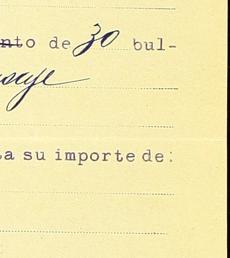 nto de 30 bul-
a su importe de: